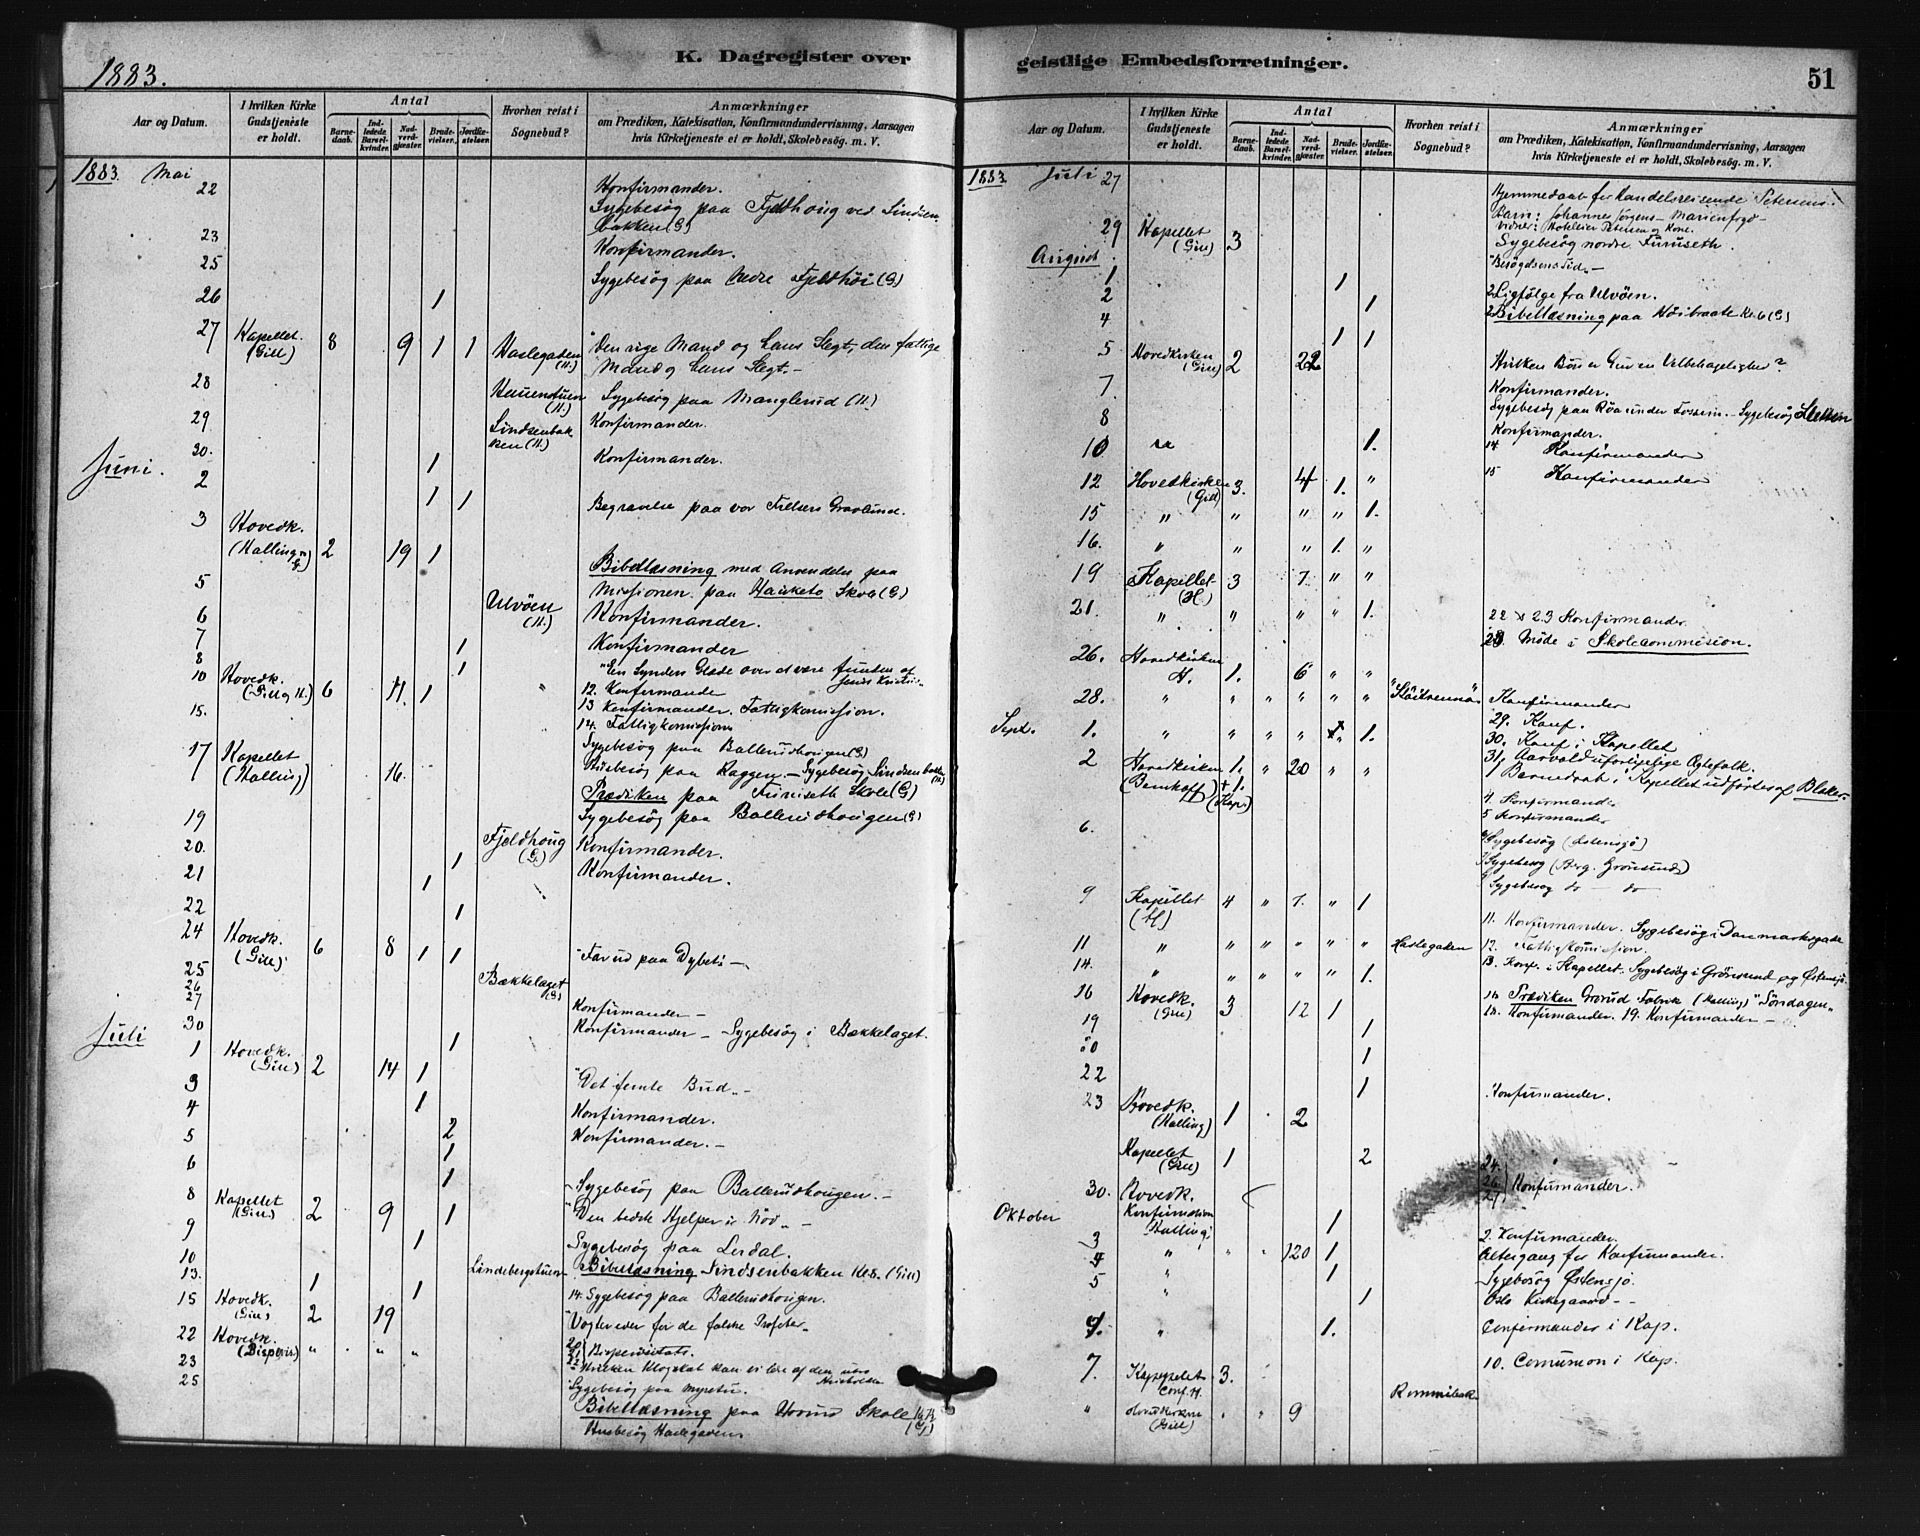 K. Dagregister over
1883.
Aar og Datum.
I hvilken Kirke Gudstjeneste er holdt.
Antal
Barnedaab.
Indledede Barselkvinder.
Nadverdgjæster
Brudevielser.
Jordfæstelser.
Hvorhen reist i Sognebud?
Anmærkninger
om Prædiken, Katekisation, Konfirmandundervisning, Aarsagen
hvis Kirketjeneste ei er holdt, Skolebesøg. m. V.
1883. Mai
22 Konfirmander.
Sygebesøg paa Fjeldhoug ved Lindsen-
bakken (G)
23 Konfirmander.
25 Sygebesøg paa Nedre Fjeldhöi (G)
26 1
27 Kapellet. (Gill) 8 9 1 1 Haslegaden (H.) "Den rige Mand og hans Slegt, den fattige
Mand og hans Slegt.-
28 Sygebesøg paa Manglerud (H.)
29 Lindsenbakken (H.) Konfirmander.
30. 1 Konfirmander.
Juni.
2 1 1 Begravelse paa vor Frelsers Gravlund.
3 Hovedk. (Halling) 2 19 1
Bibellæsning med Anvendelse paa
5 Missionen paa Hauketo Skole (G)
6 Ulvöen (H.) Konfirmander.
7 1 Konfirmander
8 1
10 Hovedk. 6 11. 1
"En Synders Glæde over at være funden af Jesus Kristus"
12. Konfirmander
15. 13 Konfirmander. Fattigkomission.
14. Fattigkomission
17 Kapellet (Halling) 16.
Sygebesøg paa Ballerudhougen (G)
Husbesøg paa Raggen - Sygebesøg Lindsenbakken (H)
Prædiken paa Furuseth Skole (G)
19 Sygebesøg paa Ballerudhougen (G)
20. 1 Fjeldhoug (G.) Konfirmander.
21 1 Konfirmander.
22 1
24 Hovedk. (Gill) 6 8 1 1 "Far ud paa Dybet" -
25 Bækkelaget (G)
26
27 Konfirmander -
30 1 Konfirmander - Sygebesøg i Bækkelaget.
Juli
1 Hovedk. (Gill) 2 14 1 "Det femte Bud" -
3 1
4 2 Konfirmander.
5 1 Konfirmander. -
6 1
Sygebesøg paa Ballerudhougen. -
8 Kapellet (Gill.) 2 9 1 "Den bedste Hjelper i Nöd" -
9 1 Sygebesøg paa Lerdal.
10 Lindebergstuen Bibellæsning Lindsenbakken Kl. 6. (Gill)
13. 1 1 14. Sygebesøg paa Ballerudhougen.
15 Hovedk. (Gill) 2 19 "Vogter eder for de falske Profeter"
22 Hovedk. (Bispevis.) " " " Bispevisitats.
23 "Hvilken Klogskab kan vi lære af den uro Husholder
25 Sygebesøg paa
Bibellæsning paa Hovind Skole (G)
Husbesøg Haslegaden

geistlige Embedsforretninger.
51
Aar og Datum.
I hvilken Kirke Gudstjeneste er holdt.
Antal
Barnedaab.
Indledede Barselkvinder.
Nadverdgjæster
Brudevielser.
Jordfæstelser.
Hvorhen reist i Sognebud?
Anmærkninger
om Prædiken, Katekisation, Konfirmandundervisning, Aarsagen
hvis Kirketjeneste ei er holdt, Skolebesøg. m. V.
1883 Juli
27 Hjemmedaab for handelsreisende Petersens
Barn: Johannes Jörgens - Marienfryd -
Hoteleier Petersen og Kone.
29 Kapellet (Gill) 3 Sygebesøg nordre Furuseth.
August "Besögelsens Tid" -
1 1
2 1 2 Ligfölge fra Ulvöen.
4 1 1 2 Bibellæsning paa Höibraate Kl. 6 (G)
5 Hovedkirken (Gill) 2 22 Hvilken Bön er Gud en Velbehagelighed?
7. Konfirmander.
8 Sygebesøg paa Röa under Fossum. - Sygebesøg
Konfirmander.
10 1. 14 Konfirmander
12 Hovedkirken (Gill) 3. 4 1. " 15 Konfirmander
15 " " " " 1.
16. " " " 1. "
19 Kapellet (H) 3 7 " "
21. " " " " 1. 22 & 23 Konfirmander.
Möde i Skolecommision.
26. Hovedkirken H. 1. 6 " "
28. " " " " " " Konfirmander
29. Konf.
Sept. 1. " " " " 1. 30. Konf. i Kapellet
2 Hovedkirken 1. " 20 " " 31. Aarvold uforligelige Egtefolk.
+ 1. (Kap.) Barnedaab i Kapellet udförtes af Blaker.
4. Konfirmand.
5 Konfirmander
6. Sygebesøg (Østensjö)
Sygebesøg (Berg. Grönsund)
Sygebesøg do - do
9 Kapellet (H) 4 " 7. " 1
11. Konfirmander. Sygebesøg i Danmarksgade
11 " " " " " " Haslegaden 12. Fattigkomission.
14. " " " " " 1. 13. Konf. i Kapellet. Sygebesøg i Grönsund og Østensjö
16 Hovedk. (Gill) 3 12 1 Prædiken Grorud Fabrik (Halling) "Söndagen"
19 1 18. Konfirmander. 19. Konfirmander -
20 1
22 1 Konfirmander.
23 Hovedk. (Halling) 1 2
Kapellet (Gill) 1 2
24.
26.
27 Konfirmander.
30. Hovedk.
Oktober Konfirmation Halling 1 2. Konfirmander.
3 " " " 120 1 Altergang for Konfirmander.
4 " 1 Sygebesøg Østensjö.
5 " 1 Oslo Kirkegaard - -
" 1. Confirmander i Kap.
7. Kappelet Conf. H. 3. 10. Comunion i Kap.
" Hovedkirken (Gill) " " 9